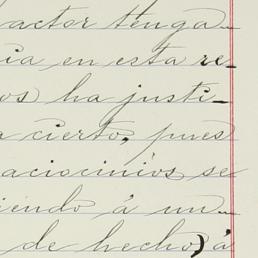 actor tenga
ia en esta re-
os ha justi-
a cierto, pues
aciocinios se
iendo á un
de hecho) á